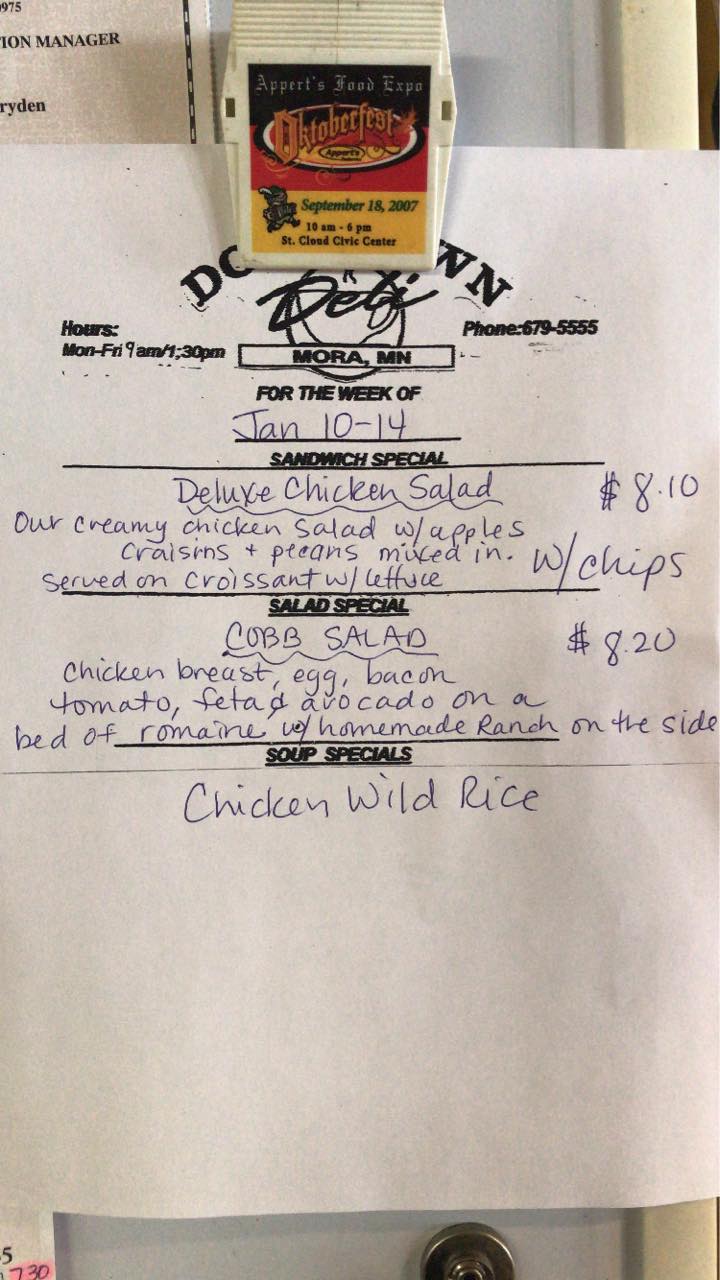 0975
ION MANAGER
ryden
Appert's Food Expo
Oktoberfest
Appert's
September 18, 2007
10 am - 6 pm
St. Cloud Civic Center
Deli
Hours:
Mon-Fri 9am/1;30pm
Phone:679-5555
MORA, MN
FOR THE WEEK OF
Jan 10-14
SANDWICH SPECIAL
Deluxe Chicken Salad $ 8.10
Our creamy chicken salad w/apples
craisins + pecans mixed in. W/chips
served on Croissant w/ lettuce
SALAD SPECIAL
COBB SALAD $ 8.20
Chicken breast, egg, bacon
tomato, feta & avocado on a
bed of romaine w/homemade Ranch on the side
SOUP SPECIALS
Chicken Wild Rice
5
730